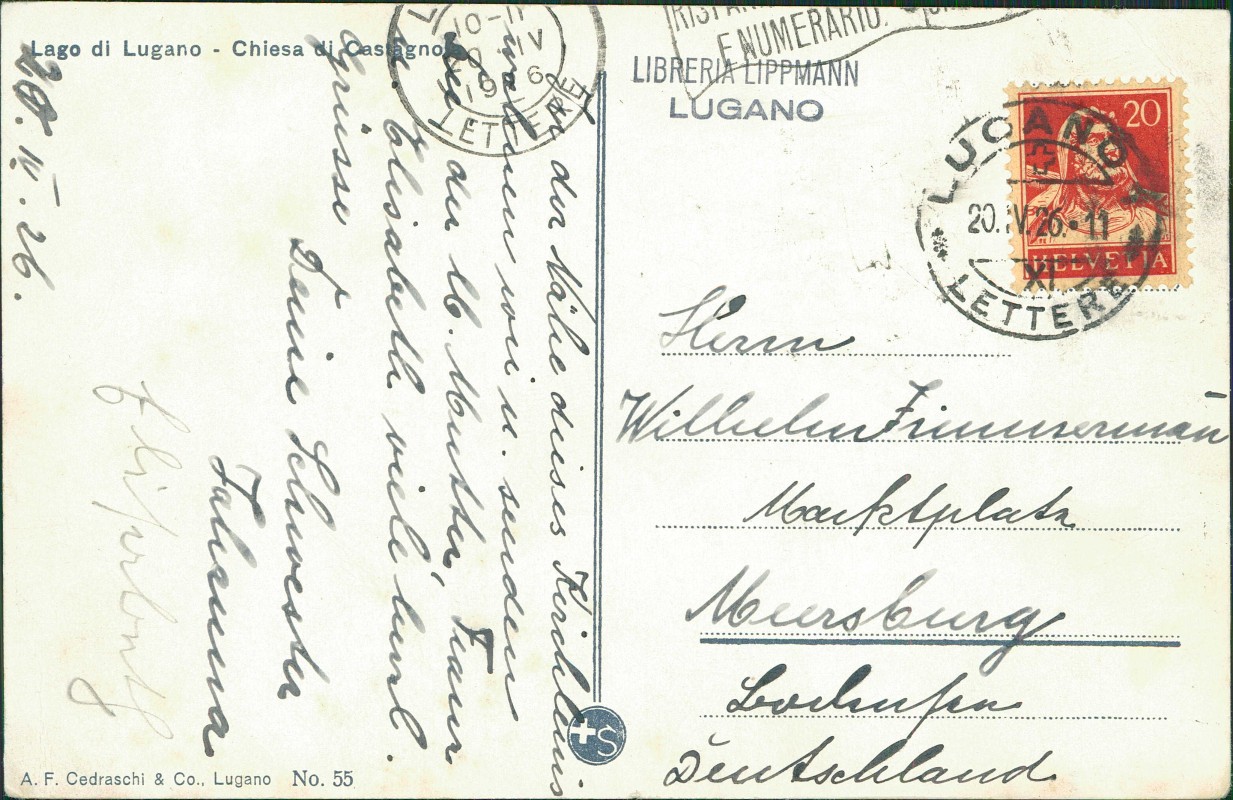 Lago di Lugano - Chiesa di Castagnola
20. IV. 26.
In der Nähe dieses Kirchleins
wohnen wir u. senden
Dir, der lb. Mutter, Franz
Elisabeth viele herzl.
Grüsse
Deine Schwester
A. F. Cedraschi & Co., Lugano No. 55
+S
10-11
IV
LETTERE
E NUMERARIO.
LIBRERIA LIPPMANN
LUGANO
20
HELVETIA
LUGANO 1
20.IV.26.•11
XI
* LETTERE *
Herrn
Wilhelm Zimmermann
Marktplatz
Meersburg
Bodensee
Deutschland